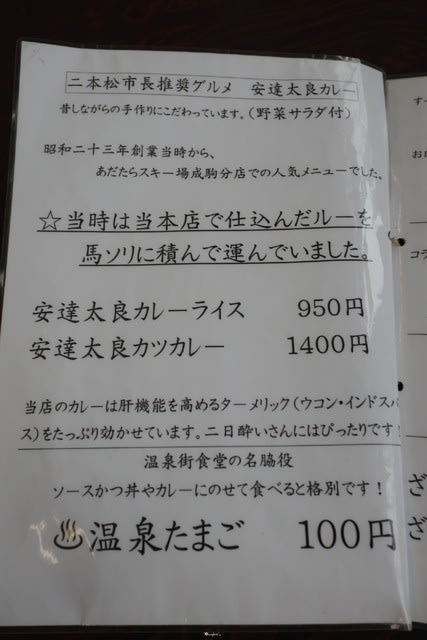 二本松市長推奨グルメ 安達太良カレー
昔しながらの手作りにこだわっています。(野菜サラダ付)
昭和二十三年創業当時から、
あだたらスキー場成駒分店での人気メニューでした。
☆当時は当本店で仕込んだルーを
馬ソリに積んで運んでいました。
安達太良カレーライス 950円
安達太良カツカレー 1400円
当店のカレーは肝機能を高めるターメリック(ウコン・インドスパ
ス)をたっぷり効かせています。二日酔いさんにはぴったりです!
温泉街食堂の名脇役
ソースかつ丼やカレーにのせて食べると格別です!
♨温泉たまご 100円
す
お
コラ
ざ
ざ